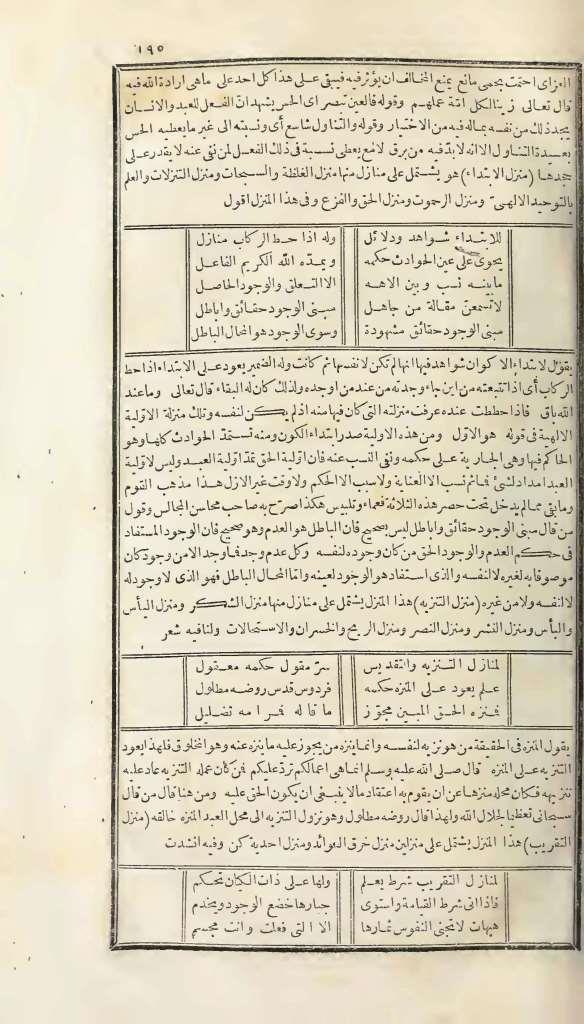 ١٩٥
العزى احتمت بحمى مانع يمنع المخالف ان يؤثر فيه فيبقى على هذا كل احد على ما هى ارادة الله فيه
قال تعالى زينا لكل امّة عملهم وقوله فالعين تبصر اى الحس يشهد ان الفعل للعبد والانسان
يجد ذلك من نفسه بماله فيه من الاختيار وقوله والتناول شاسع أى ونسبته الى غير ما يعطيه الحس
بعيدة التناول الا انه لا بدّ فيه من برق لامع يعطى نسبة فى ذلك الفعل لمن نفى عنه لا يقدر على
جحدها (منزل الابتداء) هو يشتمل على منازل منها منزل الغلظة والسبحات ومنزل التنزلات والعلم
بالتوحيد الالهىّ ومنزل الرحموت ومنزل الحق والفزع وفى هذا المنزل اقول
للابتداء شواهد ودلائل وله اذا حط الركاب منازل
يحوى على عين الحوادث حكمه ويمدّه الله الكريم الفاعل
ما بينه نسب وبين الاهه الا التعلق والوجود الحاصل
لا تسمعنّ مقالة من جاهل مبنى الوجود حقائق واباطل
مبنى الوجود حقائق مشهودة وسوى الوجود هو المحال الباطل
يقول لابتداء الاكوان شواهد فيها انها لم تكن لانفسها ثم كانت وله الضمير يعود على الابتداء اذا حط
الركاب أى اذا تتبعته من اين جاء وجدته من عند من اوجده ولذلك كان له البقاء قال تعالى وما عند
الله باق فاذا حططت عنده عرفت منزلته التى كان فيها منه اذ لم يكن لنفسه وتلك منزلة الاولية
الالهية فى قوله هو الاول ومن هذه الاولية صدر ابتداء الكون ومنه تستمدّ الحوادث كلها وهو
الحاكم فيها وهى الجارية على حكمه ونفى النسب عنه فان اوّلية الحق تمدّ اوّلية العبد وليس لاولية
العبد امداد لشئ فما ثم نسب الا العناية ولا سبب الا الحكم ولا وقت غير الازل هذا مذهب القوم
وما بقى مما لم يدخل تحت حصر هذه الثلاثة فعماء وتلبيس هكذا صرّح به صاحب محاسن المجالس وقول
من قال مبنى الوجود حقائق واباطل ليس بصحيح فان الباطل هو العدم وهو صحيح فان الوجود المستفاد
فى حكم العدم والوجود الحق من كان وجوده لنفسه وكل عدم وجد فما وجد الا من وجود كان
موصوفا به لغيره لا لنفسه والذى استفاد هو الوجود لعينه واما المحال الباطل فهو الذى لا وجود له
لا لنفسه ولا من غيره (منزل التنزيه) هذا المنزل يشتمل على منازل منها منزل الشكر ومنزل اليأس
والبأس ومنزل النشر ومنزل النصر ومنزل الربح والخسران والاستحالات ولنا فيه شعر
لمنازل التنزيه والتقديس سرّ مقول حكمه معقول
علم يعود على المنزه حكمه فردوس قدس روضه مطلول
فمنزه الحق المبين مجوّز ما قاله فرامه تضليل
يقول المنزه فى الحقيقة من هو نزيه لنفسه وانما ينزه من يجوز عليه ما ينزه عنه وهو المخلوق فلهذا يعود
التنزيه على المنزه قال صلى الله عليه وسلم انما هى اعمالكم تردّ عليكم فمن كان عمله التنزيه عاد عليه
تنزيهه فكان محله منزها عن ان يقوم به اعتقاد ما لا ينبغى ان يكون الحق عليه ومن هنا قال من قال
سبحانى تعظيما لجلال الله ولهذا قال روضه مطلول وهو نزول التنزيه الى محل العبد المنزه خالقه (منزل
التقريب) هذا المنزل يشتمل على منزلين منزل خرق العوائد ومنزل احدية كن وفيه انشدت
لمنازل التقريب شرط يعلم ولها على ذات الكيان تحكم
فاذا اتى شرط القيامة واستوى جبارها خضع الوجود ويخدم
هيهات لا تجنى النفوس ثمارها الا التى فعلت وانت مجسم